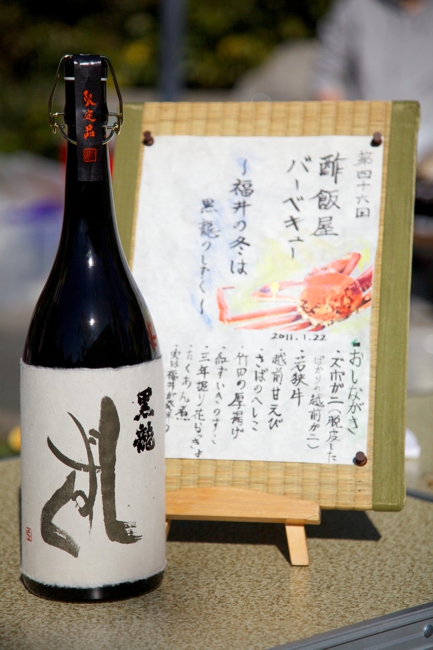 限定品
黒龍
しずく
第四十六回
酢飯屋
バーベキュー
～福井の冬は
黒龍のしずく～
2011.1.22
おしながき
・ズボガニ(脱皮した
ばかりの越前ガニ)
・若狭牛
・越前甘えび
・さばのへしこ
・竹田の厚揚げ
・紅ずいきのすこ
・三年掘り花らっきょ
・たくあん煮